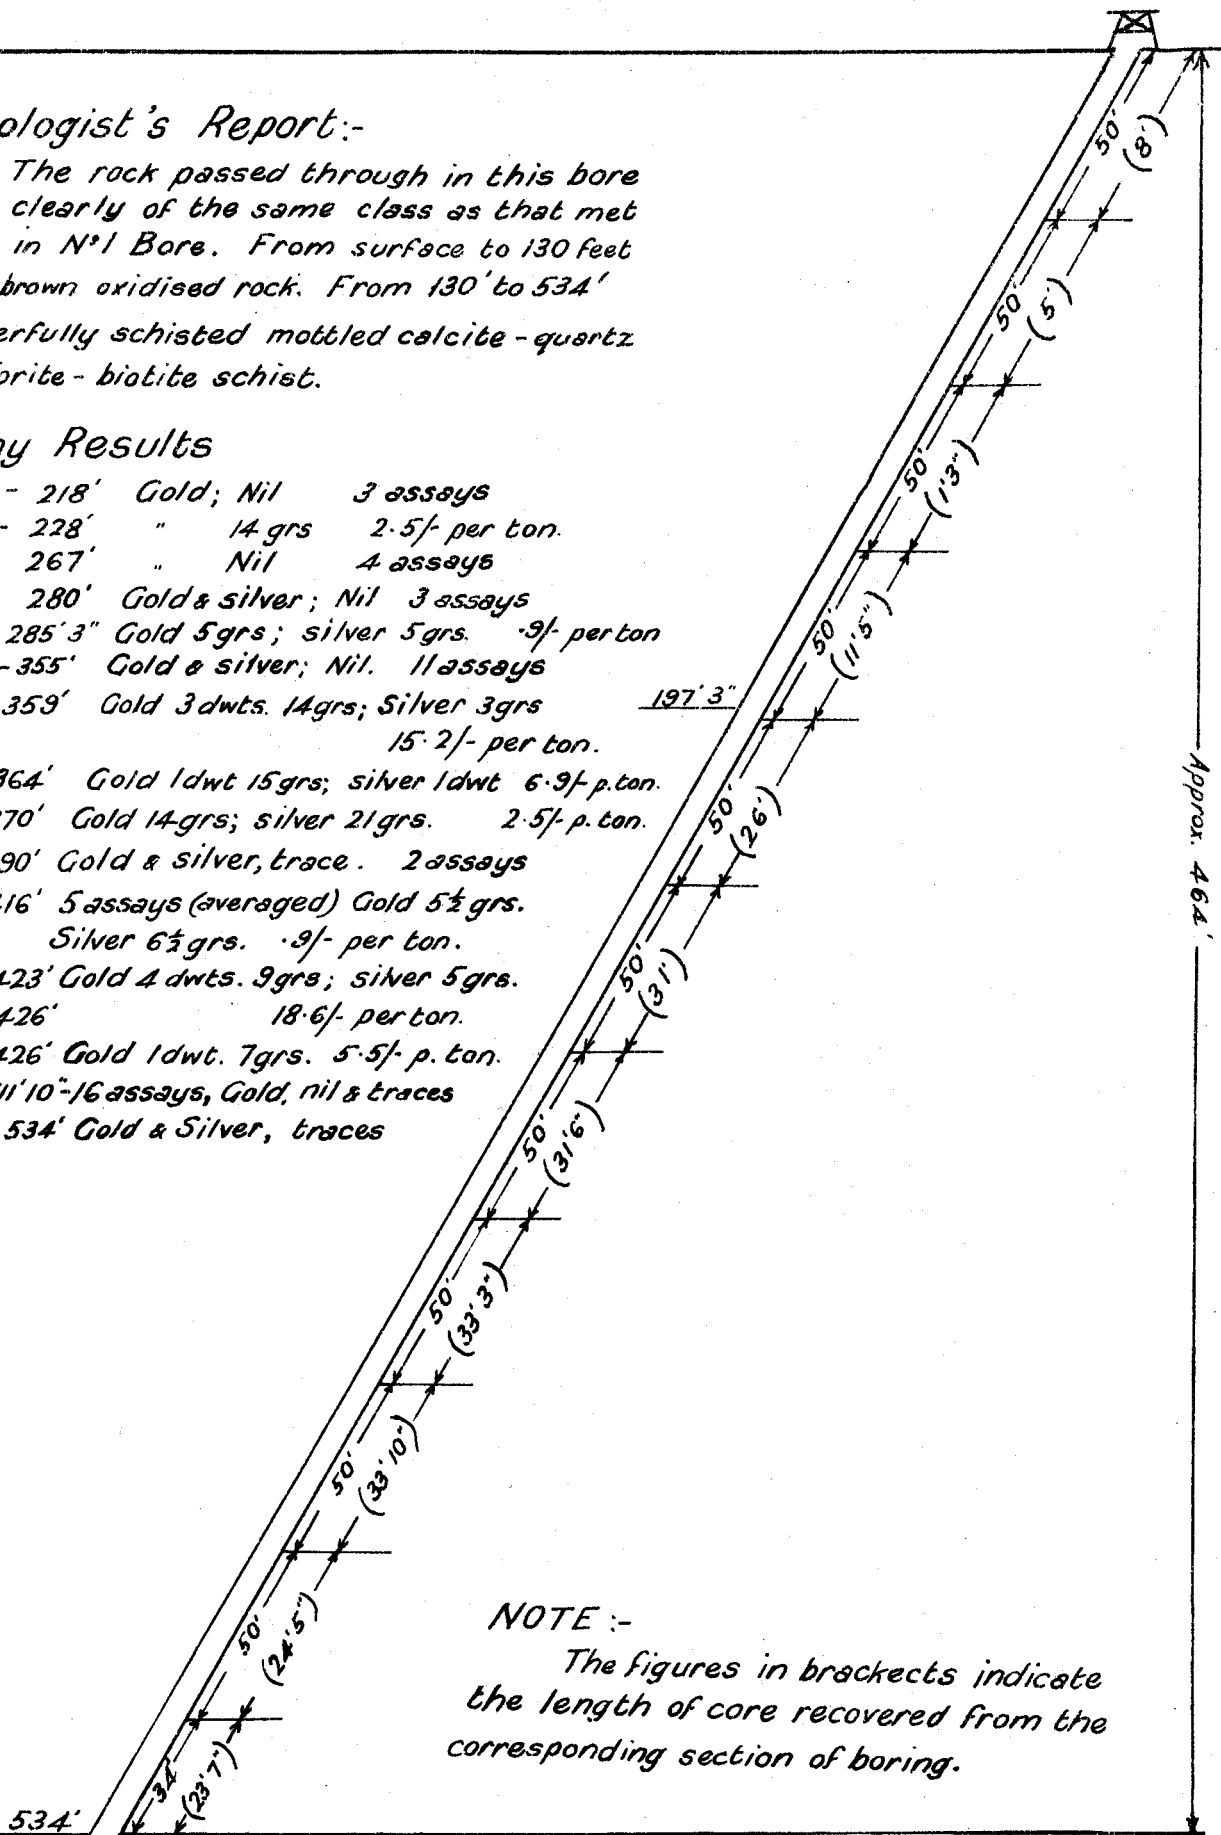 ologist's Report:-
The rock passed through in this bore
clearly of the same class as that met
in Nº1 Bore. From surface to 130 feet
brown oxidised rock. From 130' to 534'
erfully schisted mottled calcite - quartz
orite - biotite schist.
ay Results
- 218' Gold; Nil 3 assays
- 228' " 14 grs 2·5/- per ton.
267' " Nil 4 assays
280' Gold & silver; Nil 3 assays
285'3" Gold 5grs; silver 5grs. ·9/- per ton
- 355' Gold & silver; Nil. 11 assays
359' Gold 3 dwts. 14grs; Silver 3grs
15·2/- per ton.
364' Gold 1dwt 15grs; silver 1dwt 6·9/- p.ton.
70' Gold 14grs; silver 21grs. 2·5/- p. ton.
90' Gold & silver, trace. 2 assays
16' 5 assays (averaged) Gold 5½ grs.
Silver 6½ grs. ·9/- per ton.
423' Gold 4 dwts. 9grs; silver 5grs.
426' 18·6/- per ton.
426' Gold 1dwt. 7grs. 5·5/- p. ton.
11'10"-16 assays, Gold, nil & traces
534' Gold & Silver, traces
50'
(8')
50'
(5')
50'
(1'3")
50'
(11'5")
197'3"
50'
(26')
50'
(31')
50'
(31'6")
50'
(33'3")
50'
(33'10")
50'
(24'5")
34'
(23'7")
534'
Approx. 464'
NOTE :-
The figures in brackects indicate
the length of core recovered from the
corresponding section of boring.